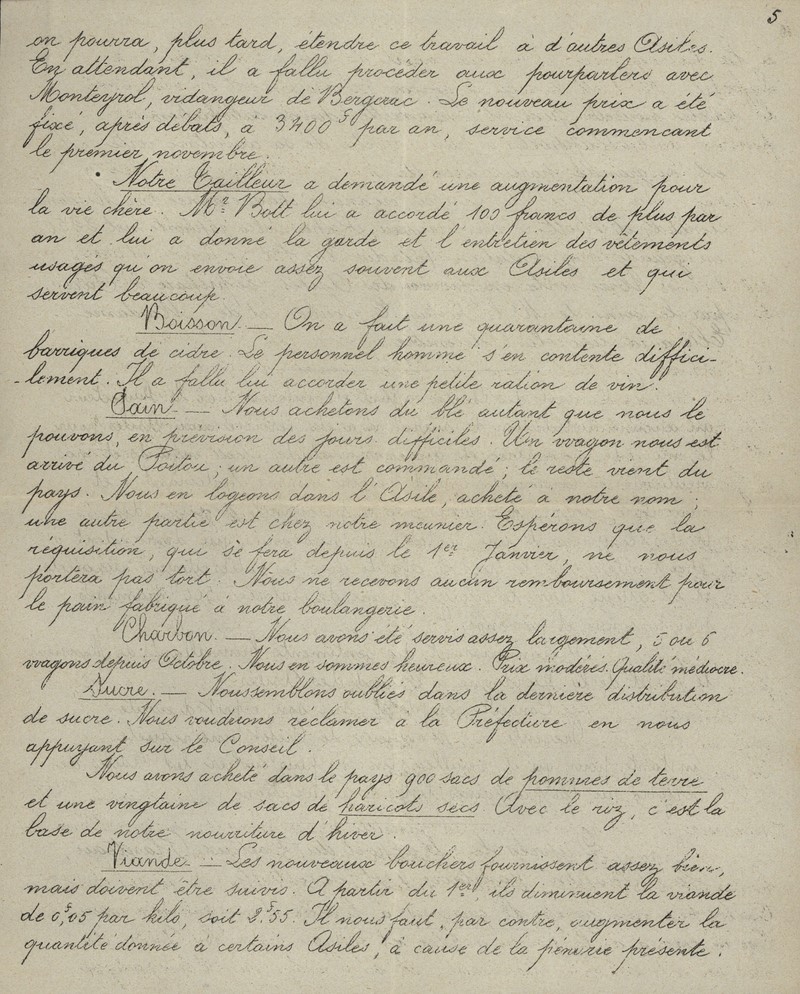 5
on pourra, plus tard, étendre ce travail à d'autres Asiles.
En attendant, il a fallu procéder aux pourparlers avec
Monteyrol, vidangeur de Bergerac. Le nouveau prix a été
fixé, après débats, à 3400f par an, service commencant
le premier novembre.
Notre Tailleur a demandé une augmentation pour
la vie chère. Mr Bott lui a accordé 100 francs de plus par
an et lui a donné la garde et l'entretien des vêtements
usagés qu'on envoie assez souvent aux Asiles et qui
servent beaucoup.
Boisson. — On a fait une quarantaine de
barriques de cidre. Le personnel homme s'en contente diffici-
-lement. Il a fallu lui accorder une petite ration de vin.
Pain. — Nous achetons du blé autant que nous le
pouvons, en prévision des jours difficiles. Un wagon nous est
arrivé du Poitou; un autre est commandé; le reste vient du
pays. Nous en logeons dans l'Asile, acheté à notre nom;
une autre partie est chez notre meunier. Espérons que la
réquisition, qui se fera depuis le 1er Janvier, ne nous
portera pas tort. Nous ne recevons aucun remboursement pour
le pain fabriqué à notre boulangerie.
Charbon. — Nous avons été servis assez largement, 5 ou 6
wagons depuis Octobre. Nous en sommes heureux. Prix modérés. Qualité médiocre.
Sucre. — Nous semblons oubliés dans la dernière distribution
de sucre. Nous voudrions réclamer à la Préfecture en nous
appuyant sur le Conseil.
Nous avons acheté dans le pays 900 sacs de pommes de terre
et une vingtaine de sacs de haricots secs. Avec le riz, c'est la
base de notre nourriture d'hiver.
Viande. — Les nouveaux bouchers fournissent assez bien,
mais doivent être suivis. A partir du 1er, ils diminuent la viande
de 0f,05 par kilo, soit 2f55. Il nous faut, par contre, augmenter la
quantité donnée à certains Asiles, à cause de la pénurie présente.